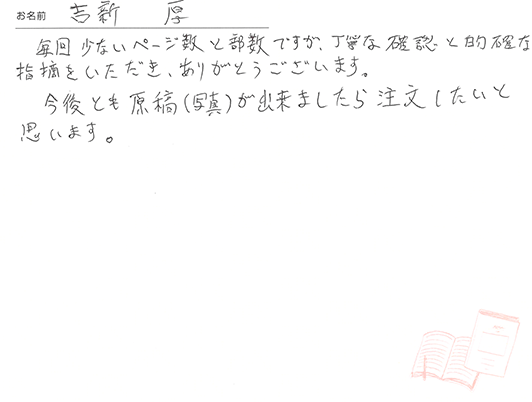 お名前 吉新 厚
毎回少ないページ数と部数ですが、丁寧な確認と的確な
指摘をいただき、ありがとうございます。
今後とも原稿(写真)が出来ましたら注文したいと
思います。